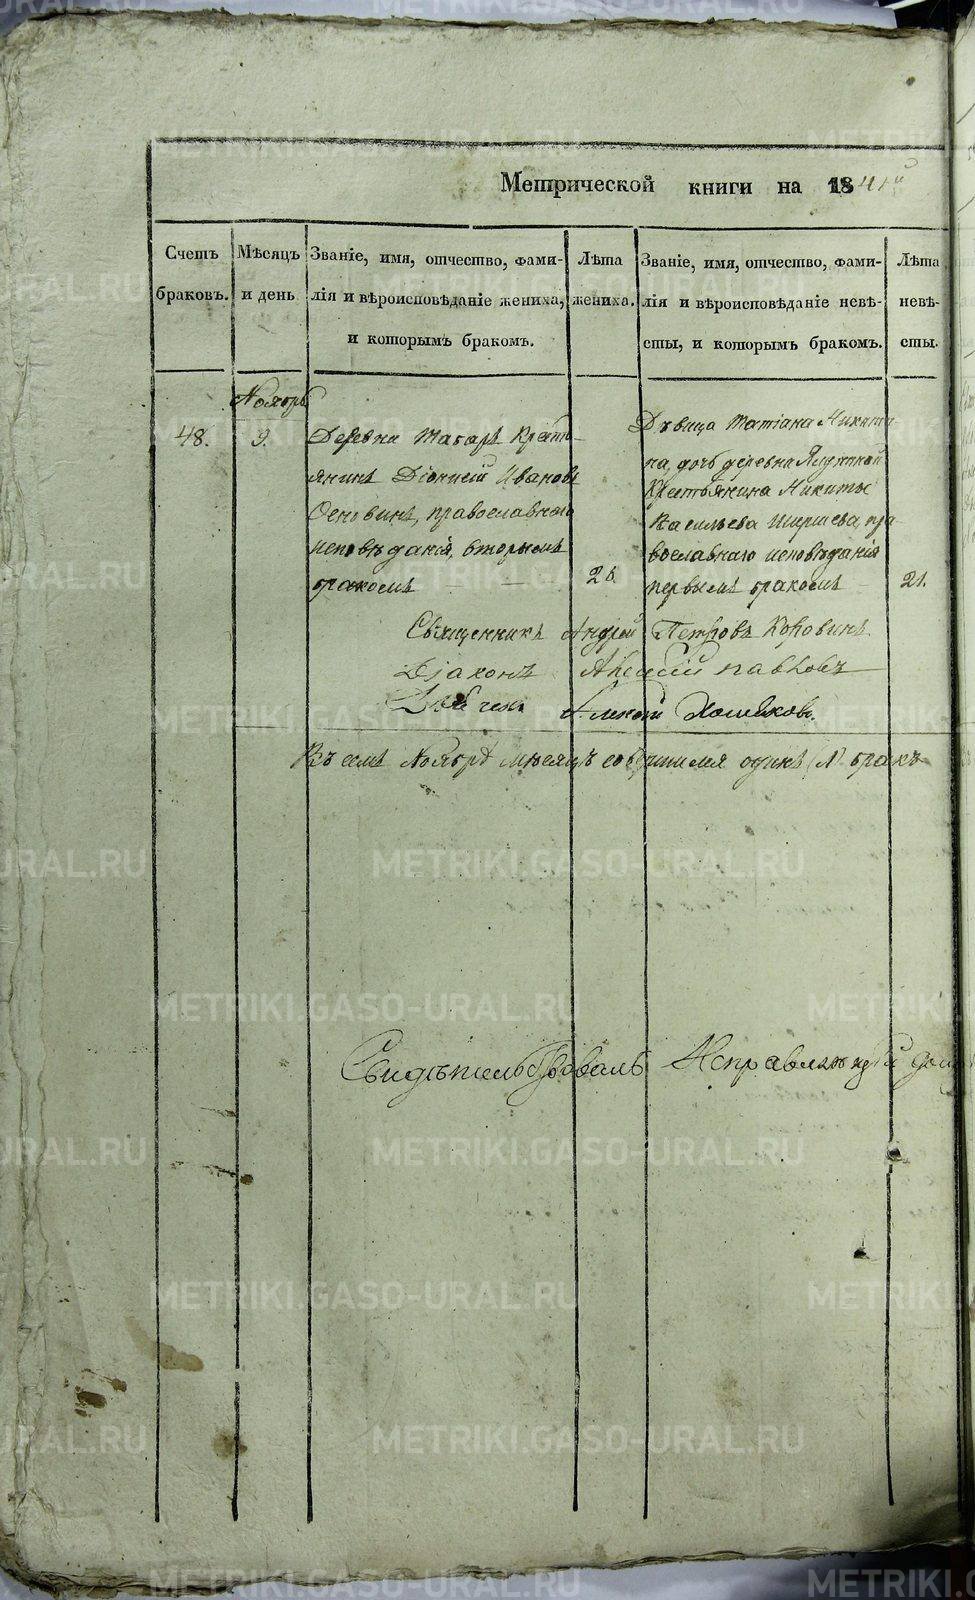 Метрической книги на 1841й
Счетъ браковъ.
Мѣсяцъ и день
Званіе, имя, отчество, фами-
лія и вѣроисповѣданіе жениха,
и которымъ бракомъ.
Лѣта жениха.
Званіе, имя, отчество, фами-
лія и вѣроисповѣданіе невѣ-
сты, и которымъ бракомъ.
Лѣта невѣ-
сты.
Ноябрь
48.
9.
Деревни Крестья-
янинъ Діонисій Ивановъ
Основинъ, православнаго
исповѣданія, вторымъ
бракомъ
26.
Дѣвица Татіана Никити-
на, дочь деревни
Крестьянина Никиты
Васильева Ширшева, пра-
вославнаго исповѣданія
первымъ бракомъ
21.
Священникъ Андрей Петровъ Коровинъ
Діаконъ Алексій Павловъ
Алексій Хомяковъ.
Въ семъ Ноябрѣ мѣсяцѣ совершился одинъ (1) бракъ
Свидѣтельствовалъ
METRIKI.GASO-URAL.RU